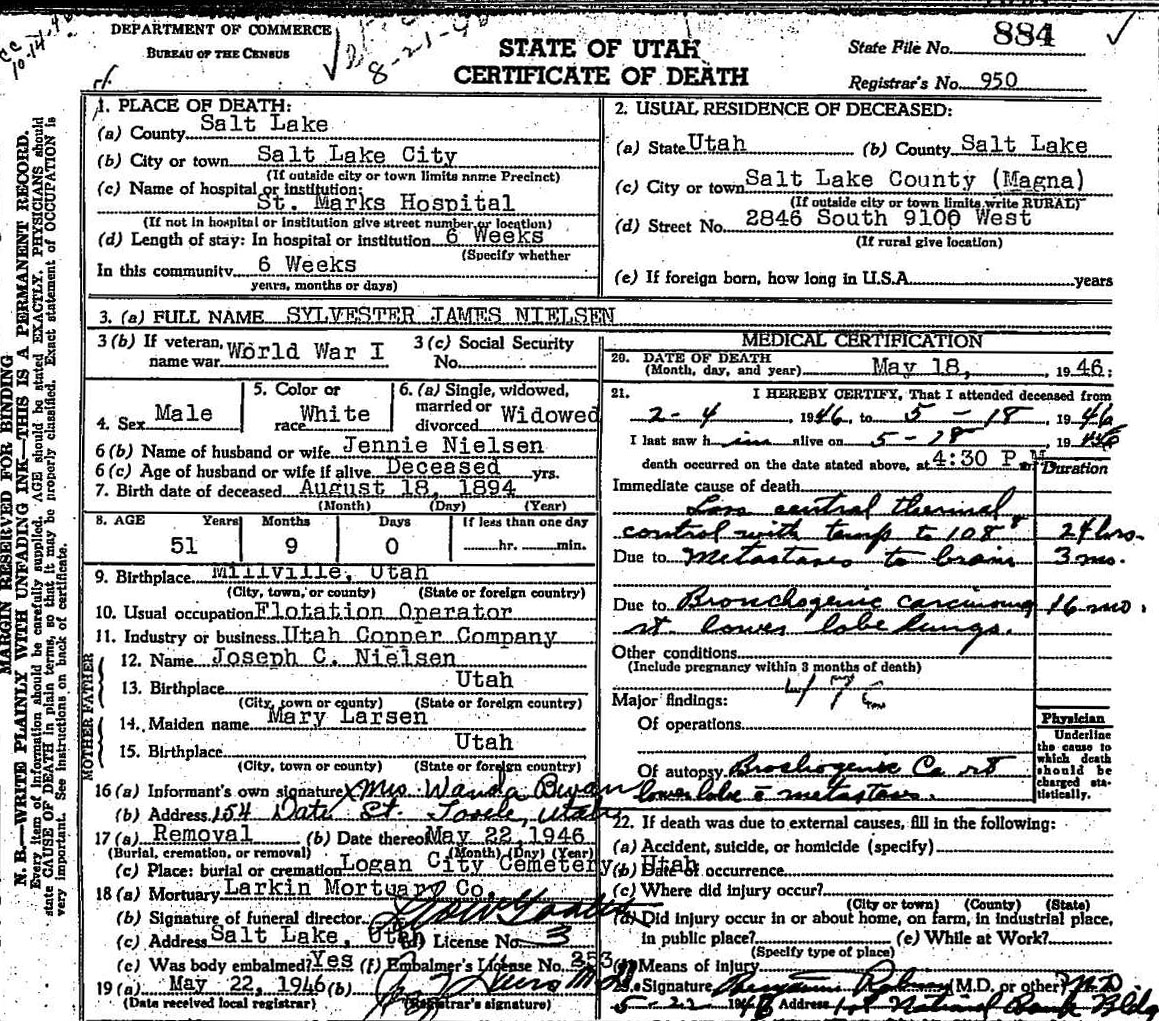 cc
10-14-4
DEPARTMENT OF COMMERCE
BUREAU OF THE CENSUS
8-21-4
STATE OF UTAH
CERTIFICATE OF DEATH
State File No. 884
Registrar's No. 950
MARGIN RESERVED FOR BINDING
N. B.—WRITE PLAINLY WITH UNFADING INK—THIS IS A PERMANENT RECORD.
Every item of information should be carefully supplied. AGE should be stated EXACTLY. PHYSICIANS should
state CAUSE OF DEATH in plain terms, so that it may be properly classified. Exact statement of OCCUPATION is
very important. See instructions on back of certificate.
1. PLACE OF DEATH:
(a) County Salt Lake
(b) City or town Salt Lake City
(If outside city or town limits name Precinct)
(c) Name of hospital or institution:
St. Marks Hospital
(If not in hospital or institution give street number or location)
(d) Length of stay: In hospital or institution 6 Weeks
(Specify whether
In this community 6 Weeks
years, months or days)
2. USUAL RESIDENCE OF DECEASED:
(a) State Utah (b) County Salt Lake
(c) City or town Salt Lake County (Magna)
(If outside city or town limits write RURAL)
(d) Street No. 2846 South 9100 West
(If rural give location)
(e) If foreign born, how long in U.S.A. years
3. (a) FULL NAME SYLVESTER JAMES NIELSEN
3 (b) If veteran, name war World War I
3 (c) Social Security No.
4. Sex Male
5. Color or race White
6. (a) Single, widowed, married or divorced Widowed
6 (b) Name of husband or wife Jennie Nielsen
6 (c) Age of husband or wife if alive Deceased yrs.
7. Birth date of deceased August 18, 1894
(Month) (Day) (Year)
8. AGE Years Months Days If less than one day
51 9 0 hr. min.
9. Birthplace Millville, Utah
(City, town, or county) (State or foreign country)
10. Usual occupation Flotation Operator
11. Industry or business Utah Copper Company
FATHER
12. Name Joseph C. Nielsen
13. Birthplace Utah
(City, town or county) (State or foreign country)
MOTHER
14. Maiden name Mary Larsen
15. Birthplace Utah
(City, town or county) (State or foreign country)
16 (a) Informant's own signature X Mrs Wanda Bevan
(b) Address 154 Date St. Tooele, Utah
17 (a) Removal (b) Date thereof May 22, 1946
(Burial, cremation, or removal) (Month) (Day) (Year)
(c) Place: burial or cremation Logan City Cemetery, Utah
18 (a) Mortuary Larkin Mortuary Co.
(b) Signature of funeral director
(c) Address Salt Lake, Utah (d) License No. 3
(e) Was body embalmed? Yes (f) Embalmer's License No. 253
19 (a) May 22, 1946 (b)
(Date received local registrar) (Registrar's signature)
MEDICAL CERTIFICATION
20. DATE OF DEATH
(Month, day, and year) May 18, , 1946;
21. I HEREBY CERTIFY, That I attended deceased from
2-4 1946, to 5-18, 1946
I last saw him alive on 5-18, 1946
death occurred on the date stated above, at 4:30 P.M.
Duration
Immediate cause of death
Loss central thermal
control with temp to 108° 24 hrs.
Due to Metastases to brain 3 mo.
Due to Bronchogenic carcinoma 16 mo.
rt. lower lobe lungs.
Other conditions
(Include pregnancy within 3 months of death)
Major findings:
Of operations
Of autopsy Bronchogenic Ca rt
lower lobe c̄ metastasis.
Physician
Underline
the cause to
which death
should be
charged sta-
tistically.
22. If death was due to external causes, fill in the following:
(a) Accident, suicide, or homicide (specify)
(b) Date of occurrence
(c) Where did injury occur?
(City or town) (County) (State)
(d) Did injury occur in or about home, on farm, in industrial place,
in public place? (e) While at Work?
(Specify type of place)
(f) Means of injury
23. Signature Benjamin (M.D. or other) M.D
5-22 1946 Address 1st National Bank Bldg